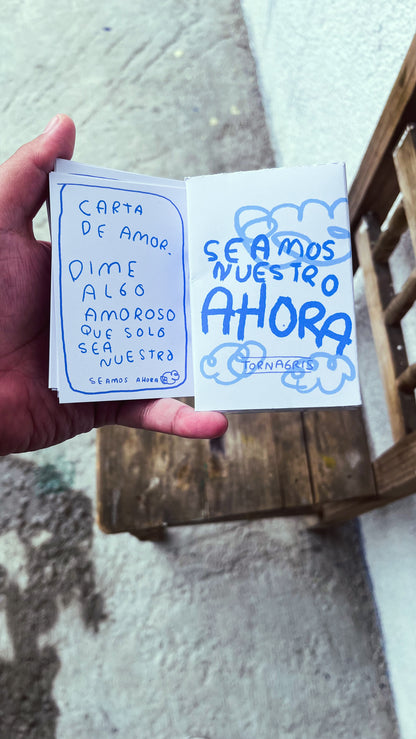 CARTA
DE AMOR.
DIME
ALGO
AMOROSO
QUE SOLO
SEA
NUESTRO
SEAMOS AHORA
SEAMOS
NUESTRO
AHORA
TORNAGRIS